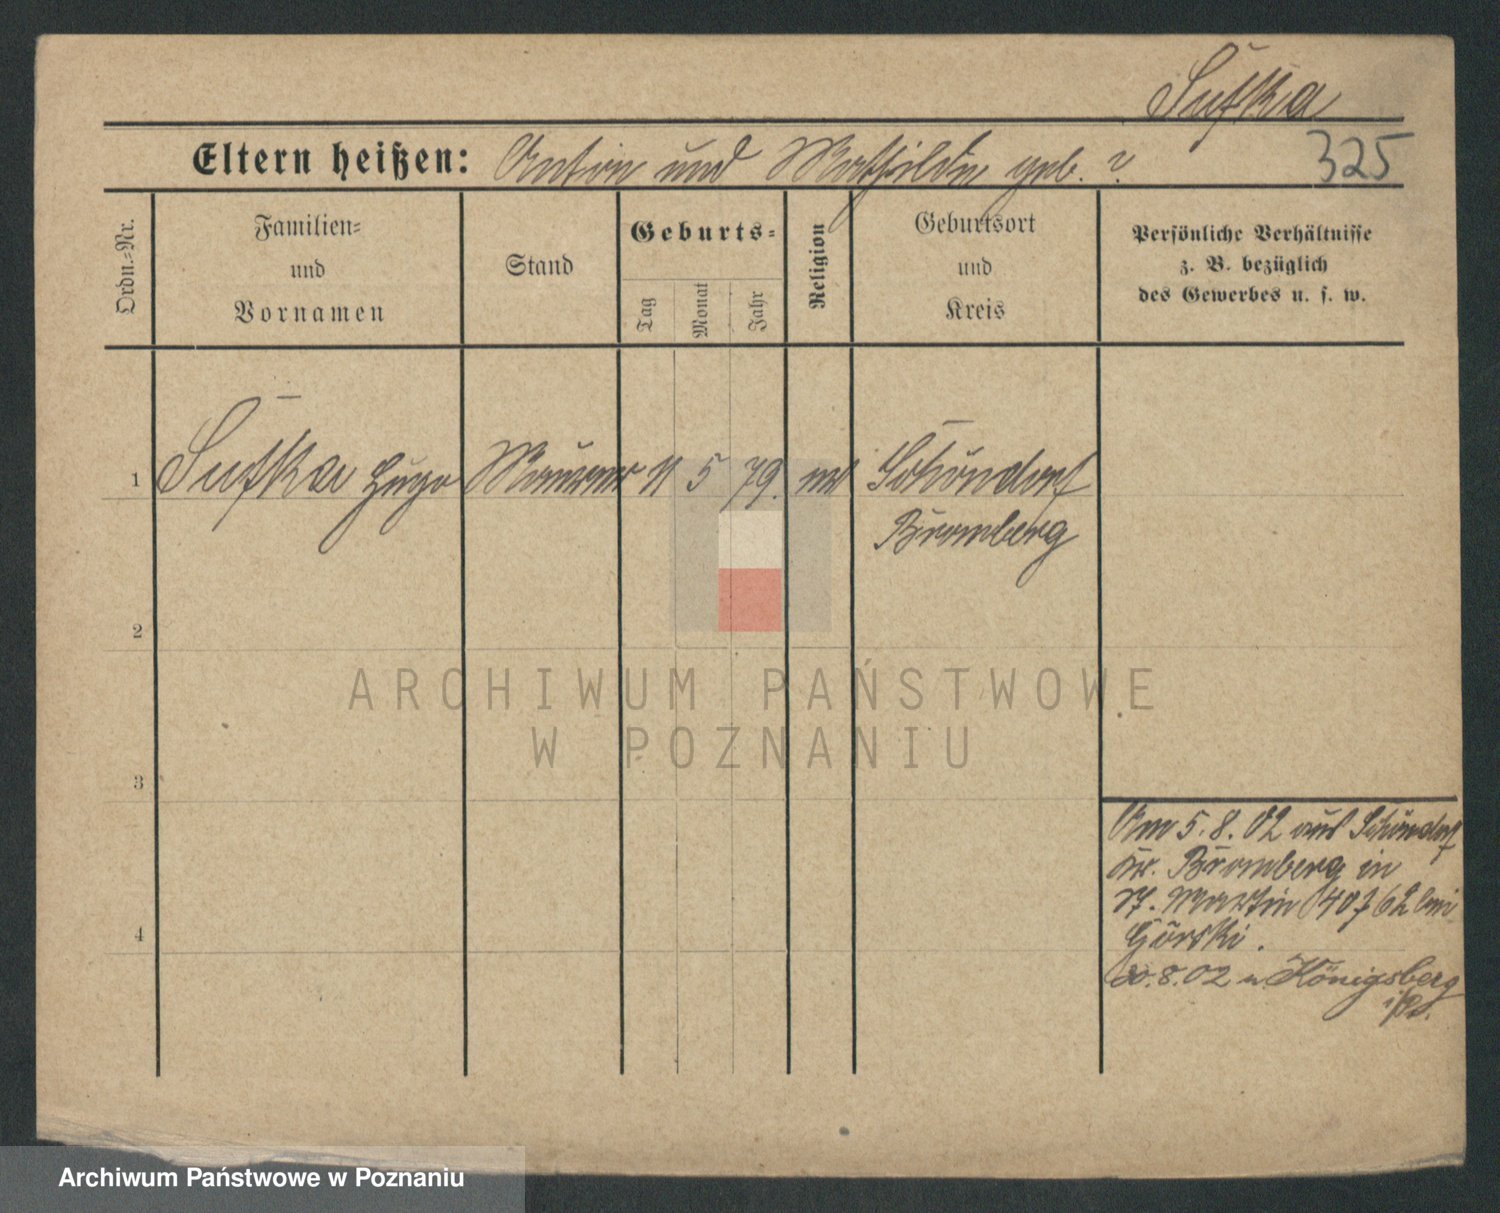 Sufka
Eltern heißen: Anton und Mathilde geb. ?
325
Ordn.-Nr.
Familien-
und
Vornamen
Stand
Geburts-
Tag
Monat
Jahr
Religion
Geburtsort
und
Kreis
Persönliche Verhältnisse
z. B. bezüglich
des Gewerbes u. s. w.
1 Sufka Hugo Maurer 11 5 79. Schöndorf
Bromberg
2
3
4
Am 5.8.02 aus Schöndorf
Kr. Bromberg in
St. Martin 40 bei
Górski.
20.8.02 n Königsberg
i/Pr.
ARCHIWUM PAŃSTWOWE
W POZNANIU
Archiwum Państwowe w Poznaniu